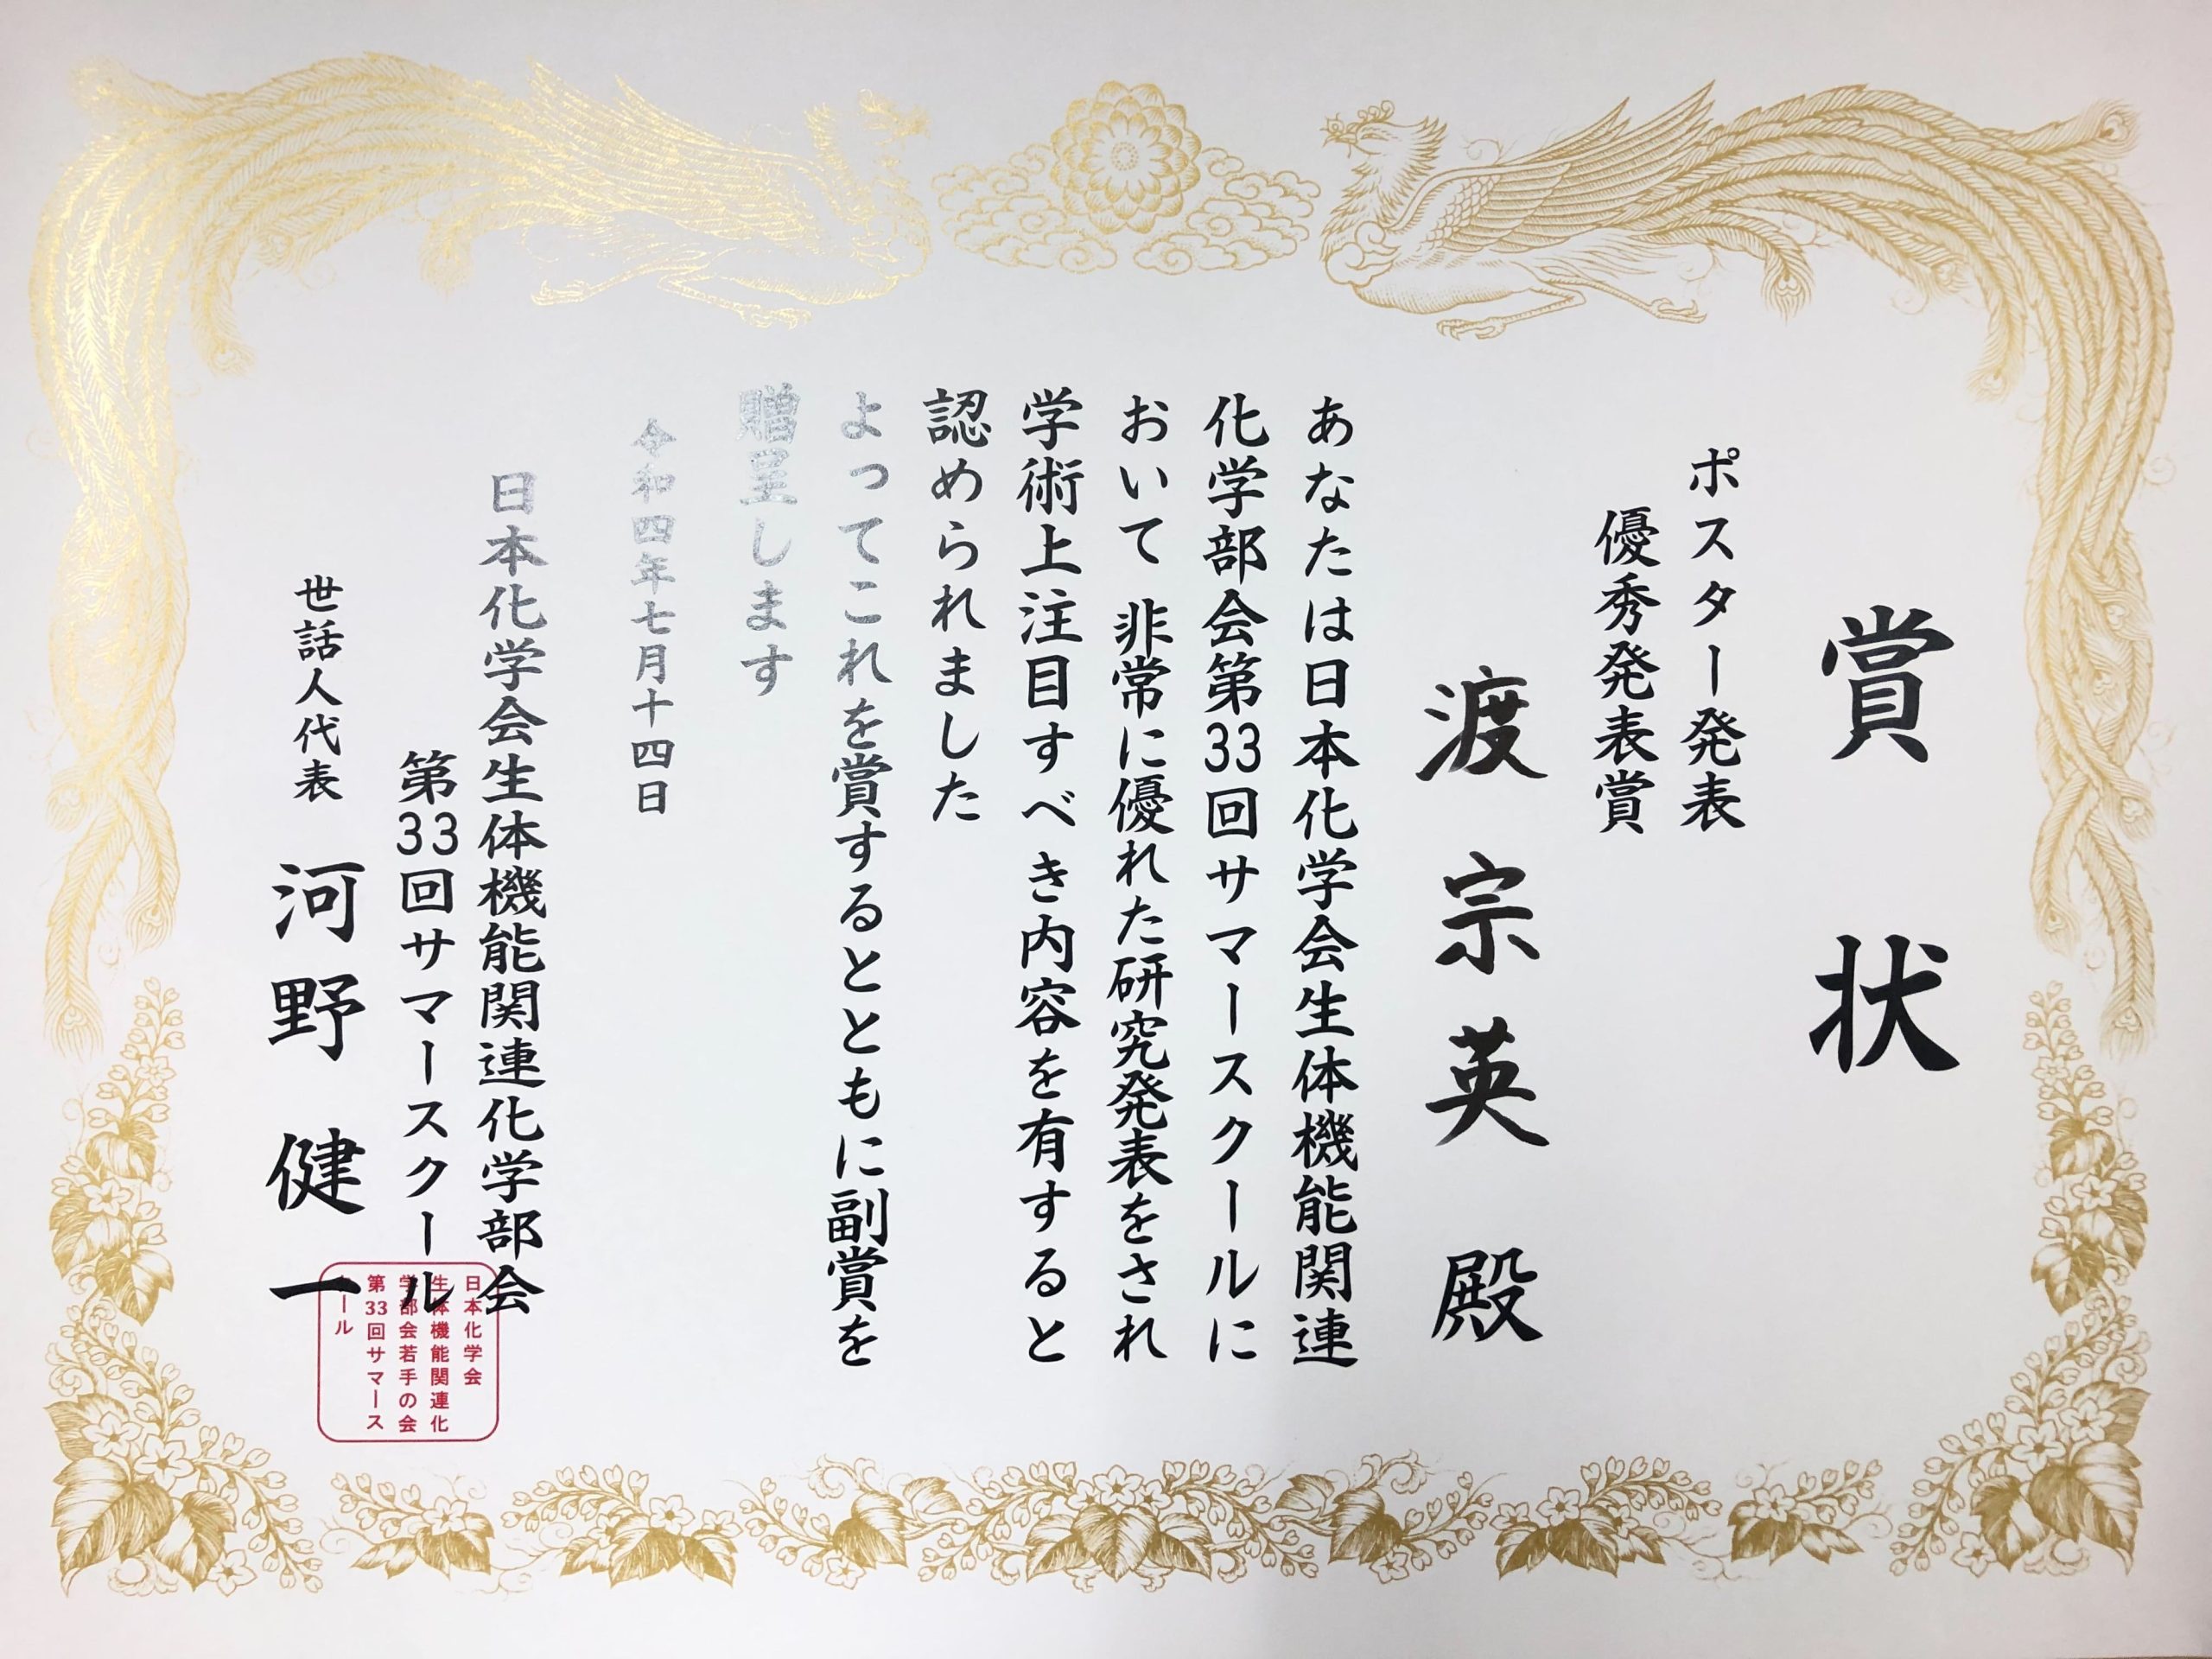 賞状
ポスター発表
優秀発表賞
渡宗英殿
あなたは日本化学会生体機能関連
化学部会第33回サマースクールに
おいて非常に優れた研究発表をされ
学術上注目すべき内容を有すると
認められました
よってこれを賞するとともに副賞を
贈呈します
令和四年七月十四日
日本化学会生体機能関連化学部会
第33回サマースクール
世話人代表 河野健一
日本化学会
生体機能関連化
学部会若手の会
第33回サマース
クール